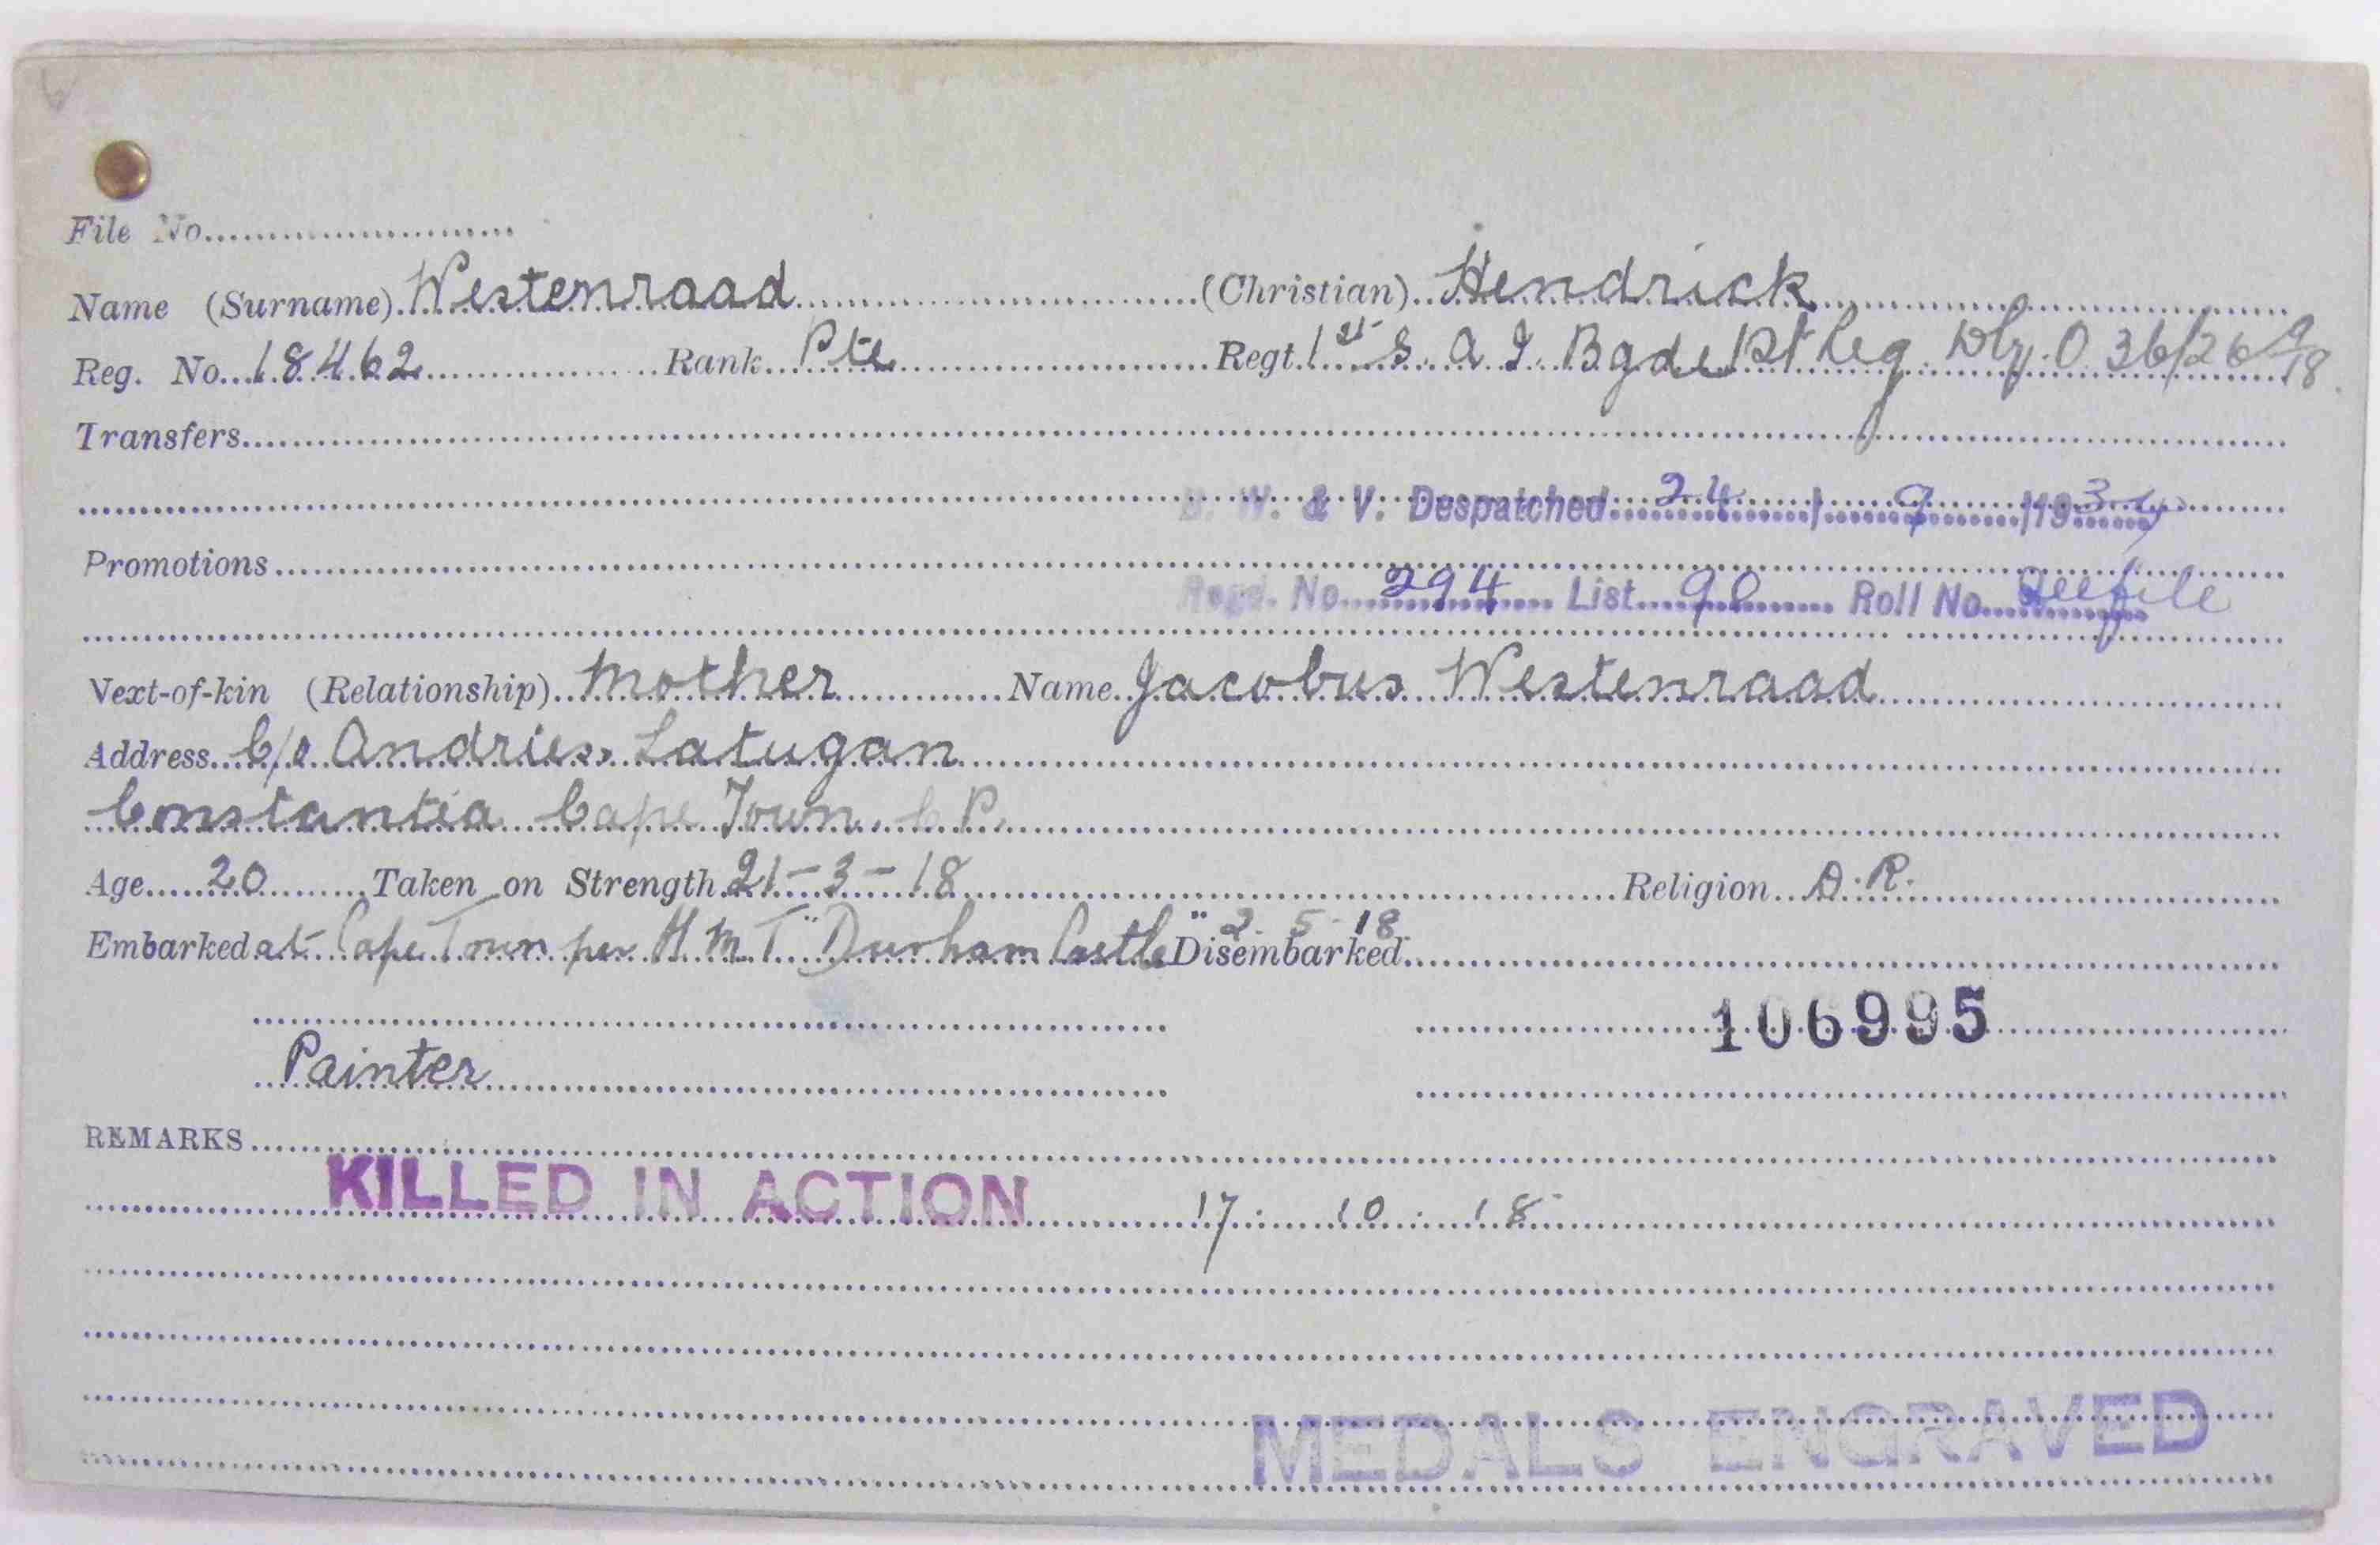 File No.
Name (Surname) Westenraad (Christian) Hendrick
Reg. No. 18462 Rank Pte Regt. 1st S. A. I. Bgde 1st Reg. O 36/26 9/18
Transfers
B. W. & V. Despatched 24 / 9 /1934
Promotions
Regd. No. 294 List 90 Roll No. See file
Next-of-kin (Relationship) Mother Name Jacobus Westenraad
Address C/o Andries Latugan
Constantia Cape Town. C P.
Age 20 Taken on Strength 21-3-18 Religion D. R.
Embarked at Cape Town per H.M.T. "Durham Castle" 2. 5. 18. Disembarked
106995
Painter
REMARKS
KILLED IN ACTION 17. 10. 18
MEDALS ENGRAVED